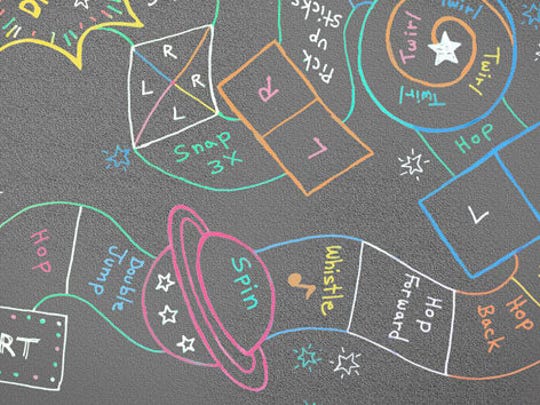 RT
Hop
Double
Jump
Spin
Whistle
Hop
Forward
Hop
Back
Hop
L
Hop
Twirl
Twirl
Twirl
Twirl
Pick
up
Sticks
R
L
Snap
3X
R
R
L
L